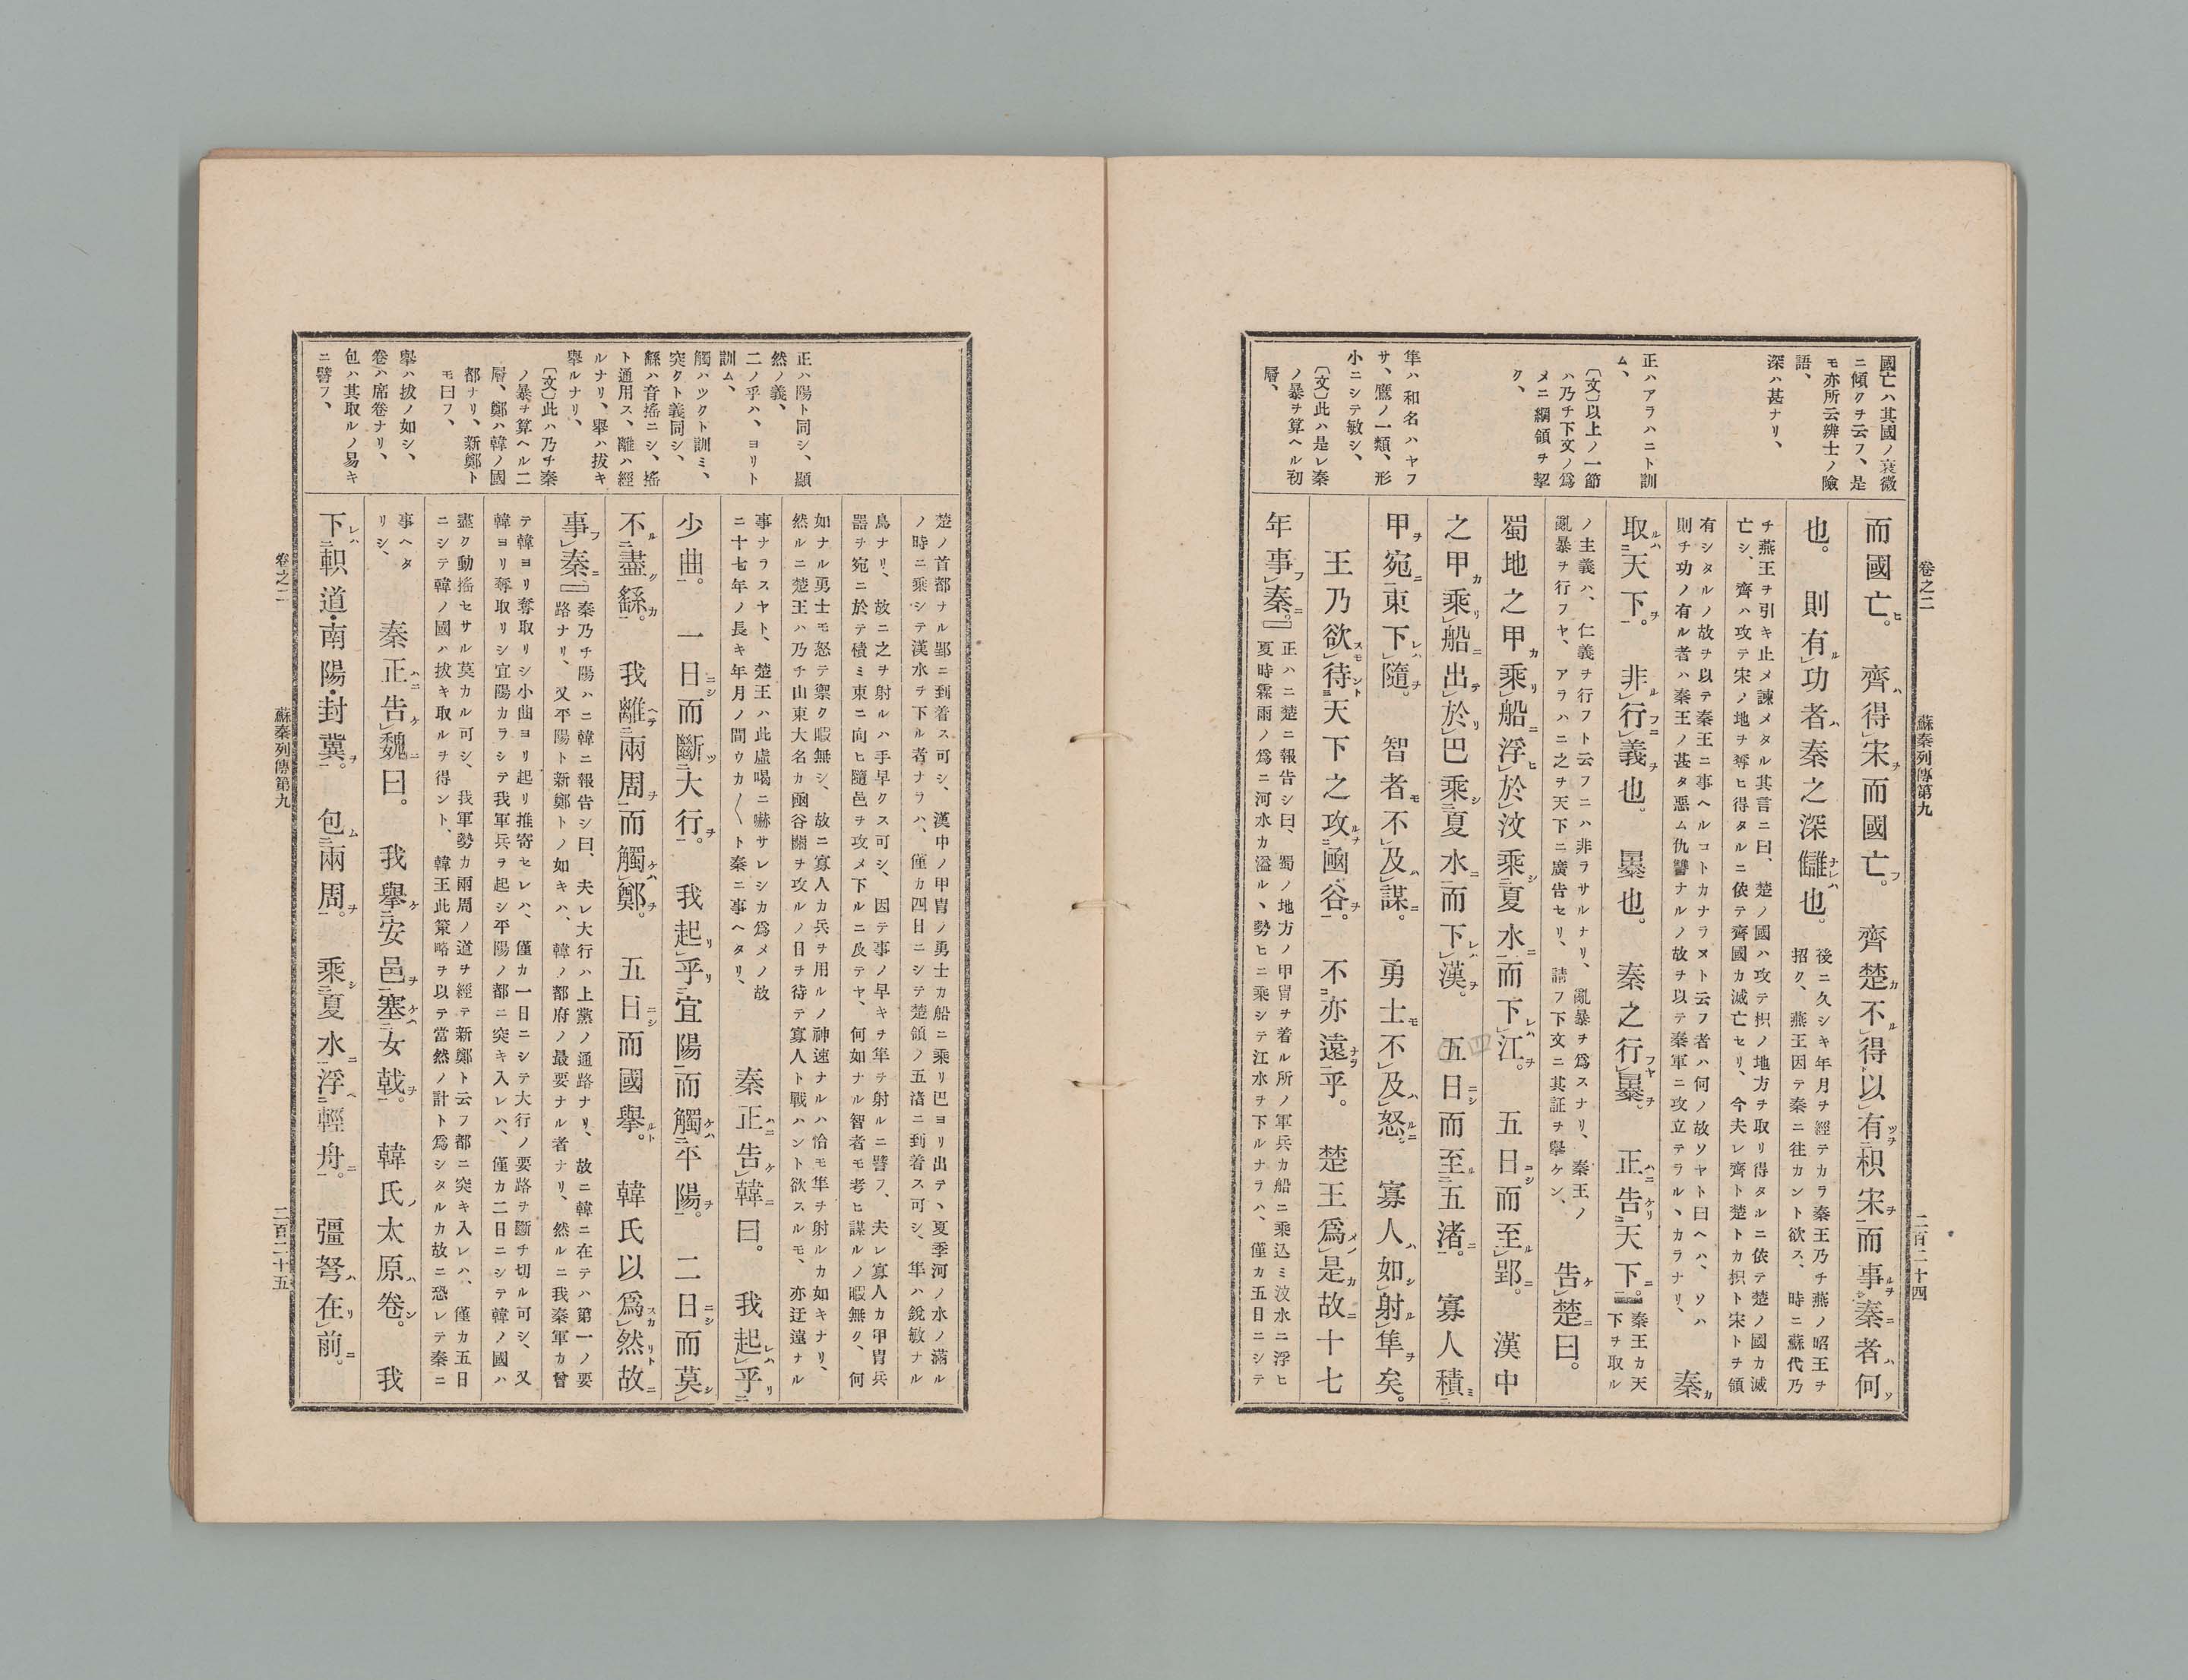 卷之二　蘇秦列傳第九　二百二十四
國亡ハ其國ノ衰微
ニ傾クヲ云フ、是
モ亦所云辨士ノ險
語、
深ハ甚ナリ、
正ハアラハニト訓
ム、
〔文〕以上ノ一節
ハ乃チ下文ノ爲
メニ綱領ヲ挈
ク、
隼ハ和名ハヤフ
サ、鷹ノ一類、形
小ニシテ敏シ、
〔文〕此ハ是レ秦
ノ暴ヲ算ヘル初
層、
而國亡。齊得宋而國亡。齊楚不得以有枳宋而事秦者何
也。則有功者秦之深讎也。
後ニ久シキ年月ヲ經テカラ秦王乃チ燕ノ昭王ヲ
招ク、燕王因テ秦ニ往カント欲ス、時ニ蘇代乃
チ燕王ヲ引キ止メ諫メタル其言ニ曰、楚ノ國ハ攻テ枳ノ地方ヲ取リ得タルニ依テ楚ノ國カ滅
亡シ、齊ハ攻テ宋ノ地ヲ奪ヒ得タルニ依テ齊國カ滅亡セリ、今夫レ齊ト楚トカ枳ト宋トヲ領
有シタルノ故ヲ以テ秦王ニ事ヘルコトカナラヌト云フ者ハ何ノ故ソヤト曰ヘハ、ソハ
則チ功ノ有ル者ハ秦王ノ甚タ惡ム仇讐ナルノ故ヲ以テ秦軍ニ攻立テラルヽカラナリ、
秦
取天下。非行義也。暴也。秦之行暴。正告天下。
秦王カ天
下ヲ取ル
ノ主義ハ、仁義ヲ行フト云フニハ非ラサルナリ、亂暴ヲ爲スナリ、秦王ノ
亂暴ヲ行フヤ、アラハニ之ヲ天下ニ廣告セリ、請フ下文ニ其証ヲ擧ケン、
告楚曰。
蜀地之甲乘船浮於汶乘夏水而下江。五日而至郢。漢中
之甲乘船出於巴乘夏水而下漢。五日而至五渚。寡人積
四
甲宛東下隨。智者不及謀。勇士不及怒。寡人如射隼矣。
王乃欲待天下之攻函谷。不亦遠乎。楚王爲是故十七
年事秦。
正ハニ楚ニ報告シ曰、蜀ノ地方ノ甲冑ヲ着ル所ノ軍兵カ船ニ乘込ミ汶水ニ浮ヒ
夏時霖雨ノ爲ニ河水カ溢ルヽ勢ヒニ乘シテ江水ヲ下ルナラハ、僅カ五日ニシテ
正ハ陽ト同シ、顯
然ノ義、
二ノ乎ハ、ヨリト
訓ム、
觸ハツクト訓ミ、
突クト義同シ、
繇ハ音搖ニシ、搖
ト通用ス、離ハ經
ルナリ、擧ハ拔キ
擧ルナリ、
〔文〕此ハ乃チ秦
ノ暴ヲ算ヘル二
層、鄭ハ韓ノ國
都ナリ、新鄭ト
モ曰フ、
擧ハ拔ノ如シ、
卷ハ席卷ナリ、
包ハ其取ルノ易キ
ニ譬フ、
楚ノ首都ナル郢ニ到着ス可シ、漢中ノ甲冑ノ勇士カ船ニ乘リ巴ヨリ出テヽ夏季河ノ水ノ滿ル
ノ時ニ乘シテ漢水ヲ下ル者ナラハ、僅カ四日ニシテ楚領ノ五渚ニ到着ス可シ、隼ハ銳敏ナル
鳥ナリ、故ニ之ヲ射ルハ手早クス可シ、因テ事ノ早キヲ隼ヲ射ルニ譬フ、夫レ寡人カ甲冑兵
器ヲ宛ニ於テ積ミ東ニ向ヒ隨邑ヲ攻メ下ルニ及テヤ、何如ナル智者モ考ヒ謀ルノ暇無ク、何
如ナル勇士モ怒テ禦ク暇無シ、故ニ寡人カ兵ヲ用ルノ神速ナルハ恰モ隼ヲ射ルカ如キナリ、
然ルニ楚王ハ乃チ山東大名カ函谷關ヲ攻ルノ日ヲ待テ寡人ト戰ハント欲スルモ、亦迂遠ナル
事ナラスヤト、楚王ハ此虛喝ニ嚇サレシカ爲メノ故
ニ十七年ノ長キ年月ノ間ウカ〳〵ト秦ニ事ヘタリ、
秦正告韓曰。我起乎
少曲。一日而斷大行。我起乎宜陽而觸平陽。二日而莫
不盡繇。我離兩周而觸鄭。五日而國擧。韓氏以爲然故
事秦
秦乃チ陽ハニ韓ニ報告シ曰、夫レ大行ハ上黨ノ通路ナリ、故ニ韓ニ在テハ第一ノ要
路ナリ、又平陽ト新鄭トノ如キハ、韓ノ都府ノ最要ナル者ナリ、然ルニ我秦軍カ曾
テ韓ヨリ奪取リシ小曲ヨリ起リ推寄セレハ、僅カ一日ニシテ大行ノ要路ヲ斷チ切ル可シ、又
韓ヨリ奪取リシ宜陽カラシテ我軍兵ヲ起シ平陽ノ都ニ突キ入レハ、僅カ二日ニシテ韓ノ國ハ
盡ク動搖セサル莫カル可シ、我軍勢カ兩周ノ道ヲ經テ新鄭ト云フ都ニ突キ入レハ、僅カ五日
ニシテ韓ノ國ハ拔キ取ルヲ得ント、韓王此策略ヲ以テ當然ノ計ト爲シタルカ故ニ恐レテ秦ニ
事ヘタ
リシ、
秦正告魏曰。我擧安邑塞女戟。韓氏太原卷。我
下軹道・南陽・封冀。包兩周。乘夏水浮輕舟。彊弩在前。
卷之二　蘇秦列傳第九　二百二十五